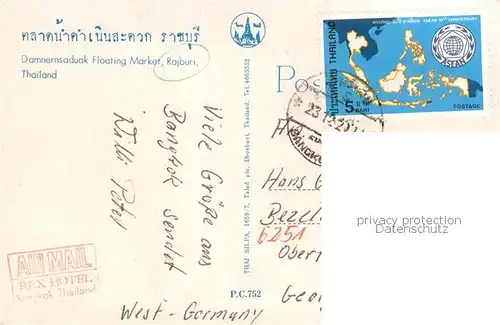 ตลาดน้ำดำเนินสะดวก ราชบุรี
Damnernsaduak Floating Market, Rajburi,
Thailand
Viele Grüße aus
Bangkok sendet
Peter
AIR MAIL
REX HOTEL
Bangkok Thailand
West-Germany
THAI SILPA, 1659/7, Talad plu, Dhonburi, Thailand. Tel. 4663552
P.C.752
ประเทศไทย THAILAND
ASEAN 10TH ANNIVERSARY
ASEAN
5 บาท
BAHT
POSTAGE
Pos
Hans
Bezel
6251
Ober
Ge
privacy protection
Datenschutz